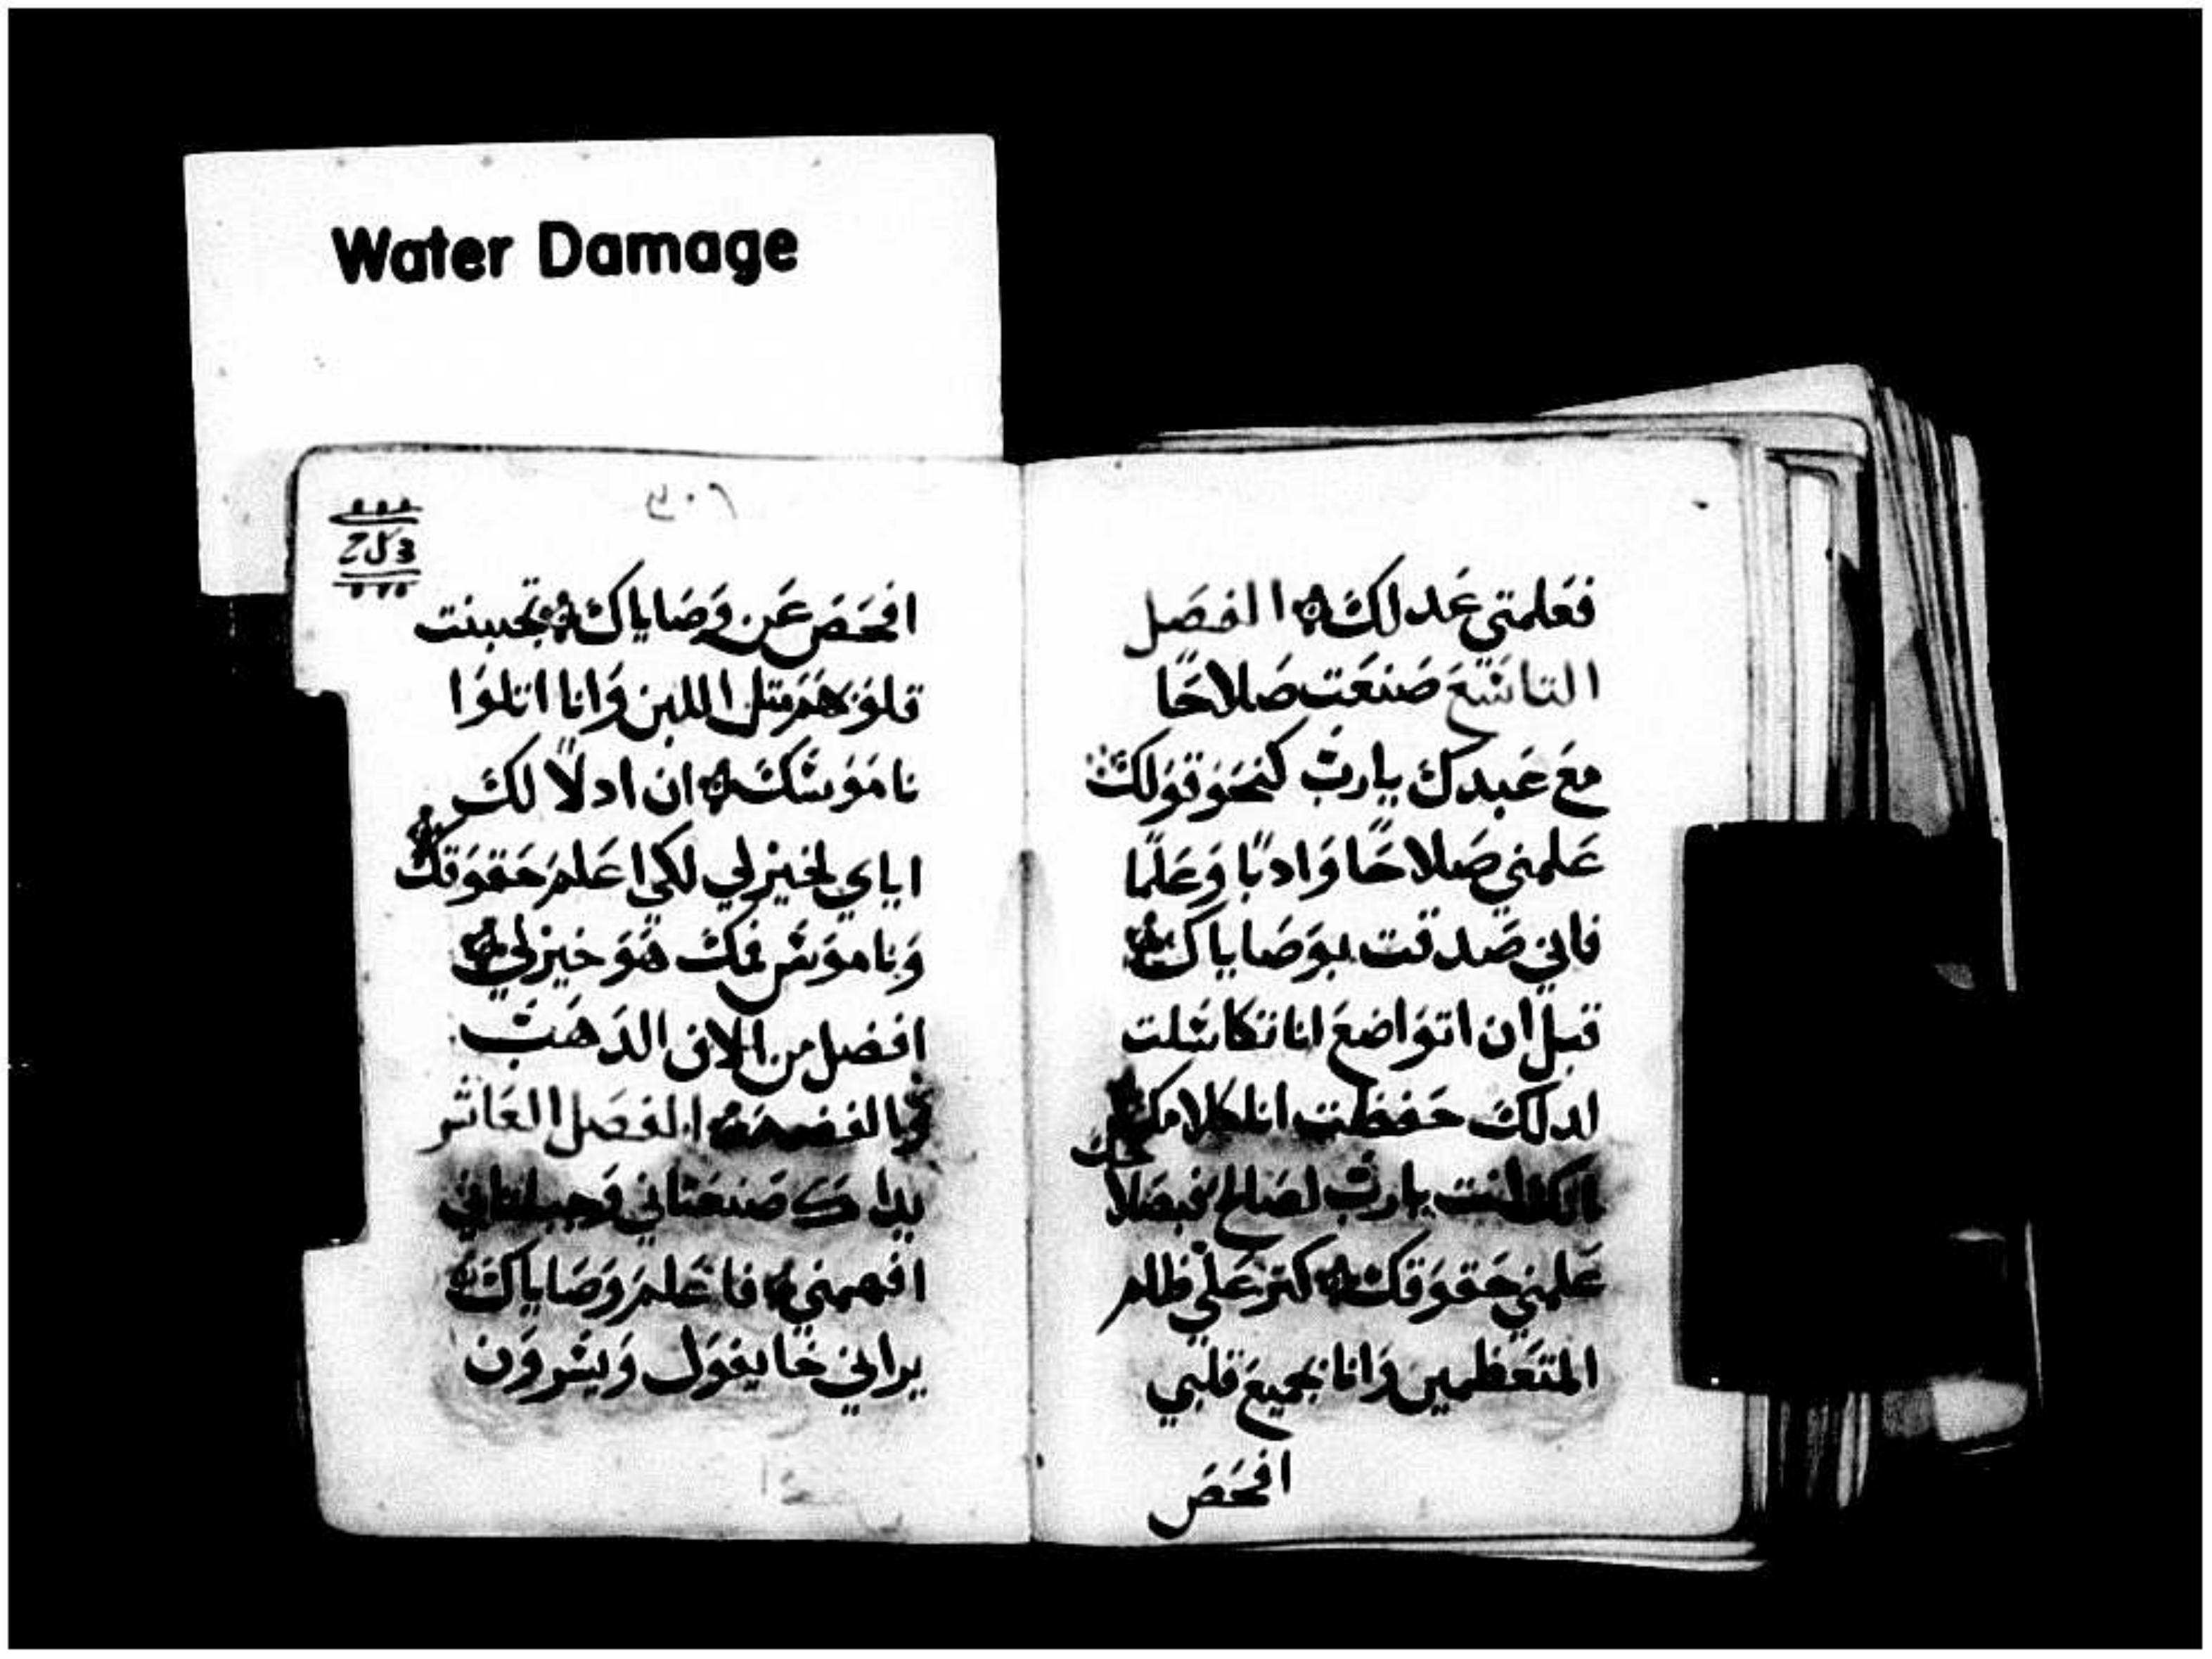 Water Damage
فعلمتي عدلك الفصل
التاسع صنعت صلاحًا
مع عبدك يارب كنحو قولك
علمني صلاحًا وادبًا وعلمًا
فاني صدقت بوصاياك
قبل ان اتواضع انا تكاسلت
لدلك حفظت انا كلامك
انت يارب لصالح فبصلا
حك
علمني حقوقك كتر علي ظلم
المتعظمين وانا بجميع قلبي
افحص
٣٠٦
افحص عن وصاياك تجبنت
قلوبهم متل اللبن وانا اتلوا
ناموسك ان ادلالك
اياي لخير لي لكي اعلم حقوقك
وناموس فمك هو خير لي
افضل من الاف الدهب
والفضه الفصل العاشر
يداك صنعتاني وجبلتاني
افهمني فاعلم وصاياك
يراني خايفوك ويسرون